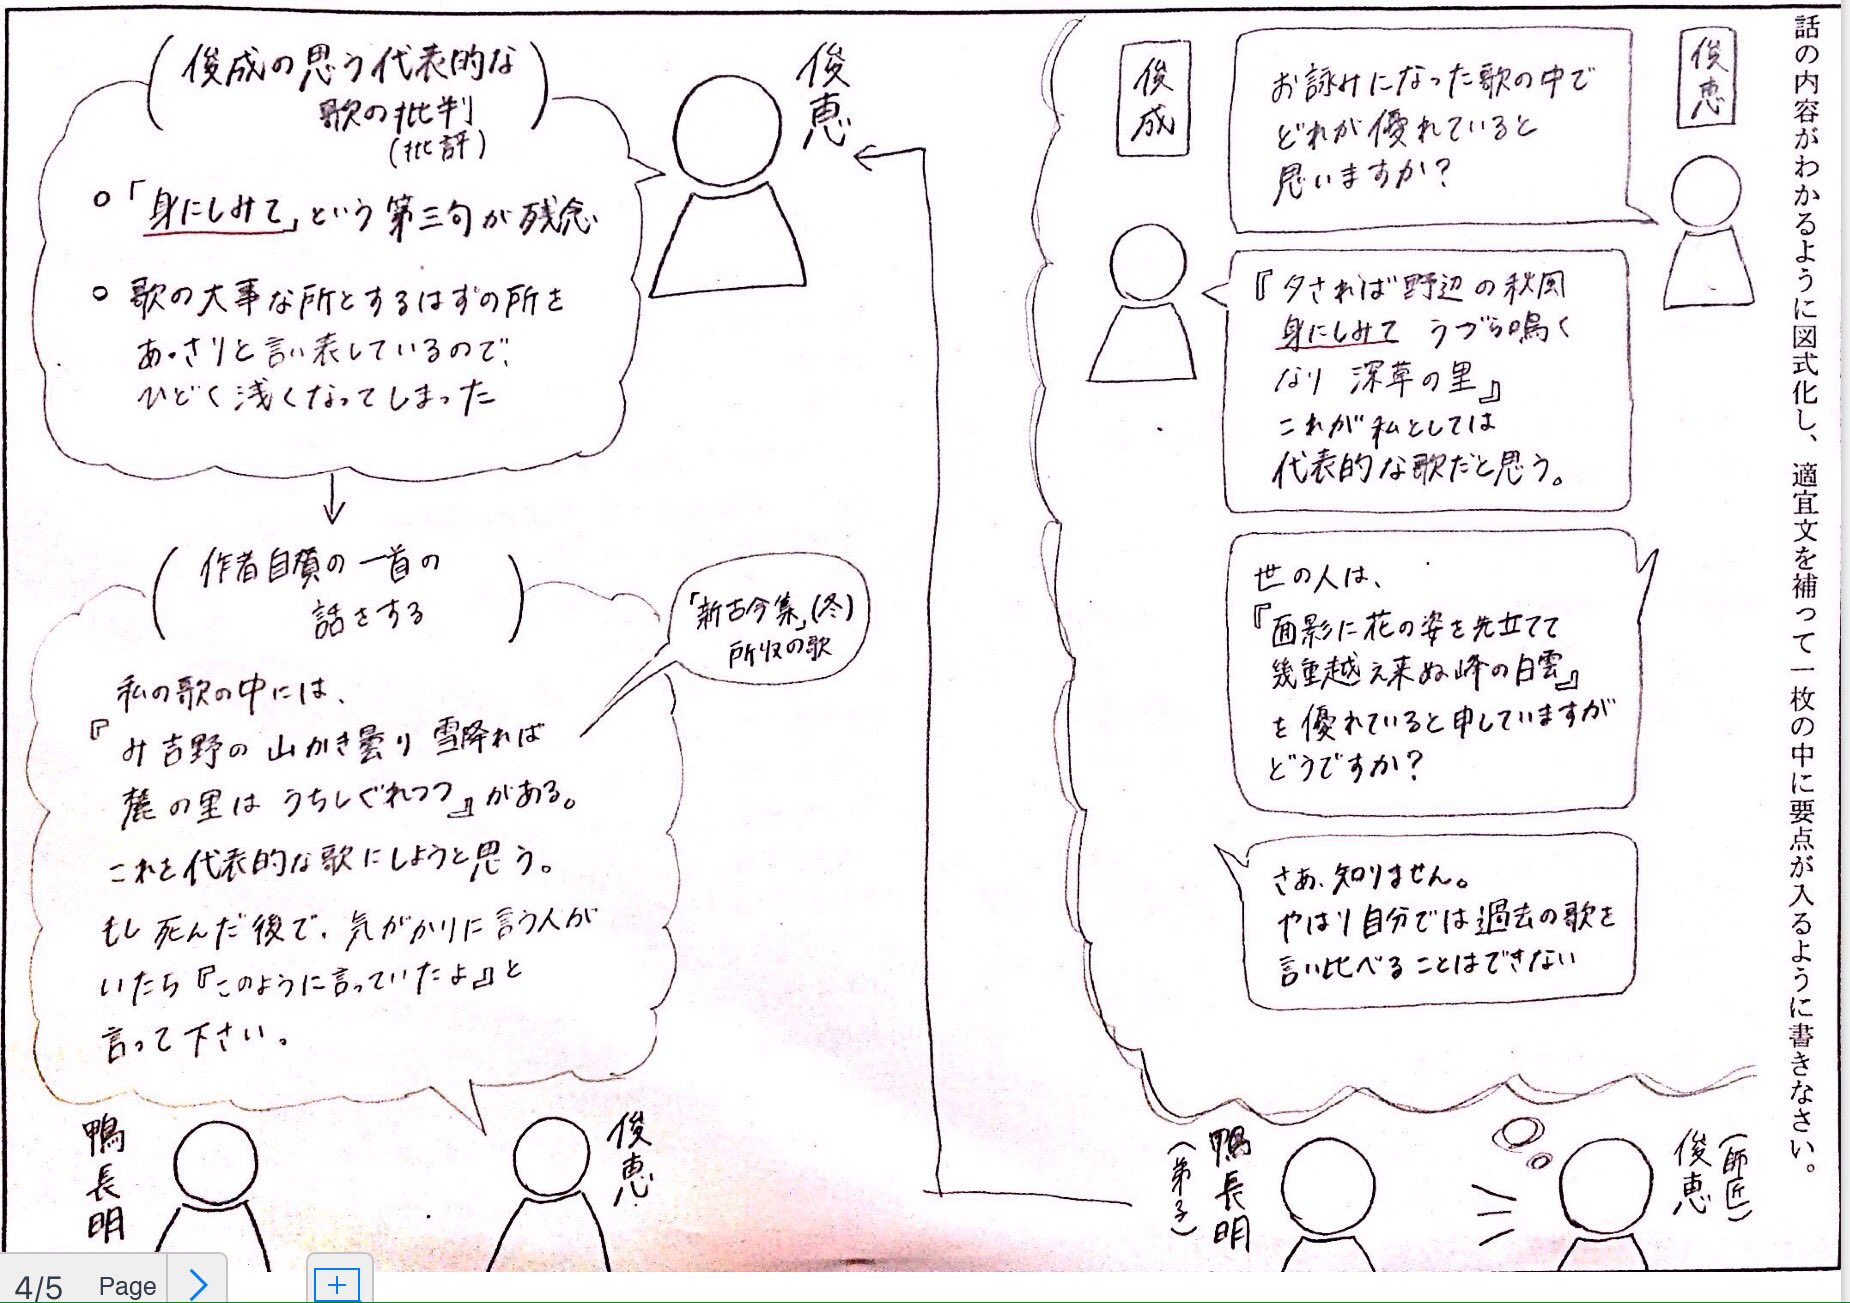 話の内容がわかるように図式化し、適宜文を補って一枚の中に要点が入るように書きなさい。
俊恵
お詠みになった歌の中で
どれが優れていると
思いますか?
俊成
『夕されば野辺の秋風
身にしみて うづら鳴く
なり 深草の里』
これが私としては
代表的な歌だと思う。
世の人は、
『面影に花の姿を先立てて
幾重越え来ぬ峰の白雲』
を優れていると申していますが
どうですか?
さあ、知りません。
やはり自分では過去の歌を
言い比べることはできない
(師匠)
俊恵
鴨長明
(弟子)
俊恵
(俊成の思う代表的な
歌の批判)
(批評)
○「身にしみて」という第三句が残念
○ 歌の大事な所とするはずの所を
あっさりと言い表しているので、
ひどく浅くなってしまった
(作者自賛の一首の
話をする)
「新古今集」(冬)
所収の歌
私の歌の中には、
『み吉野の 山かき曇り 雪降れば
麓の里は うちしぐれつつ』がある。
これを代表的な歌にしようと思う。
もし死んだ後で、気がかりに言う人が
いたら『このように言っていたよ』と
言って下さい。
俊恵
鴨長明
4/5 Page